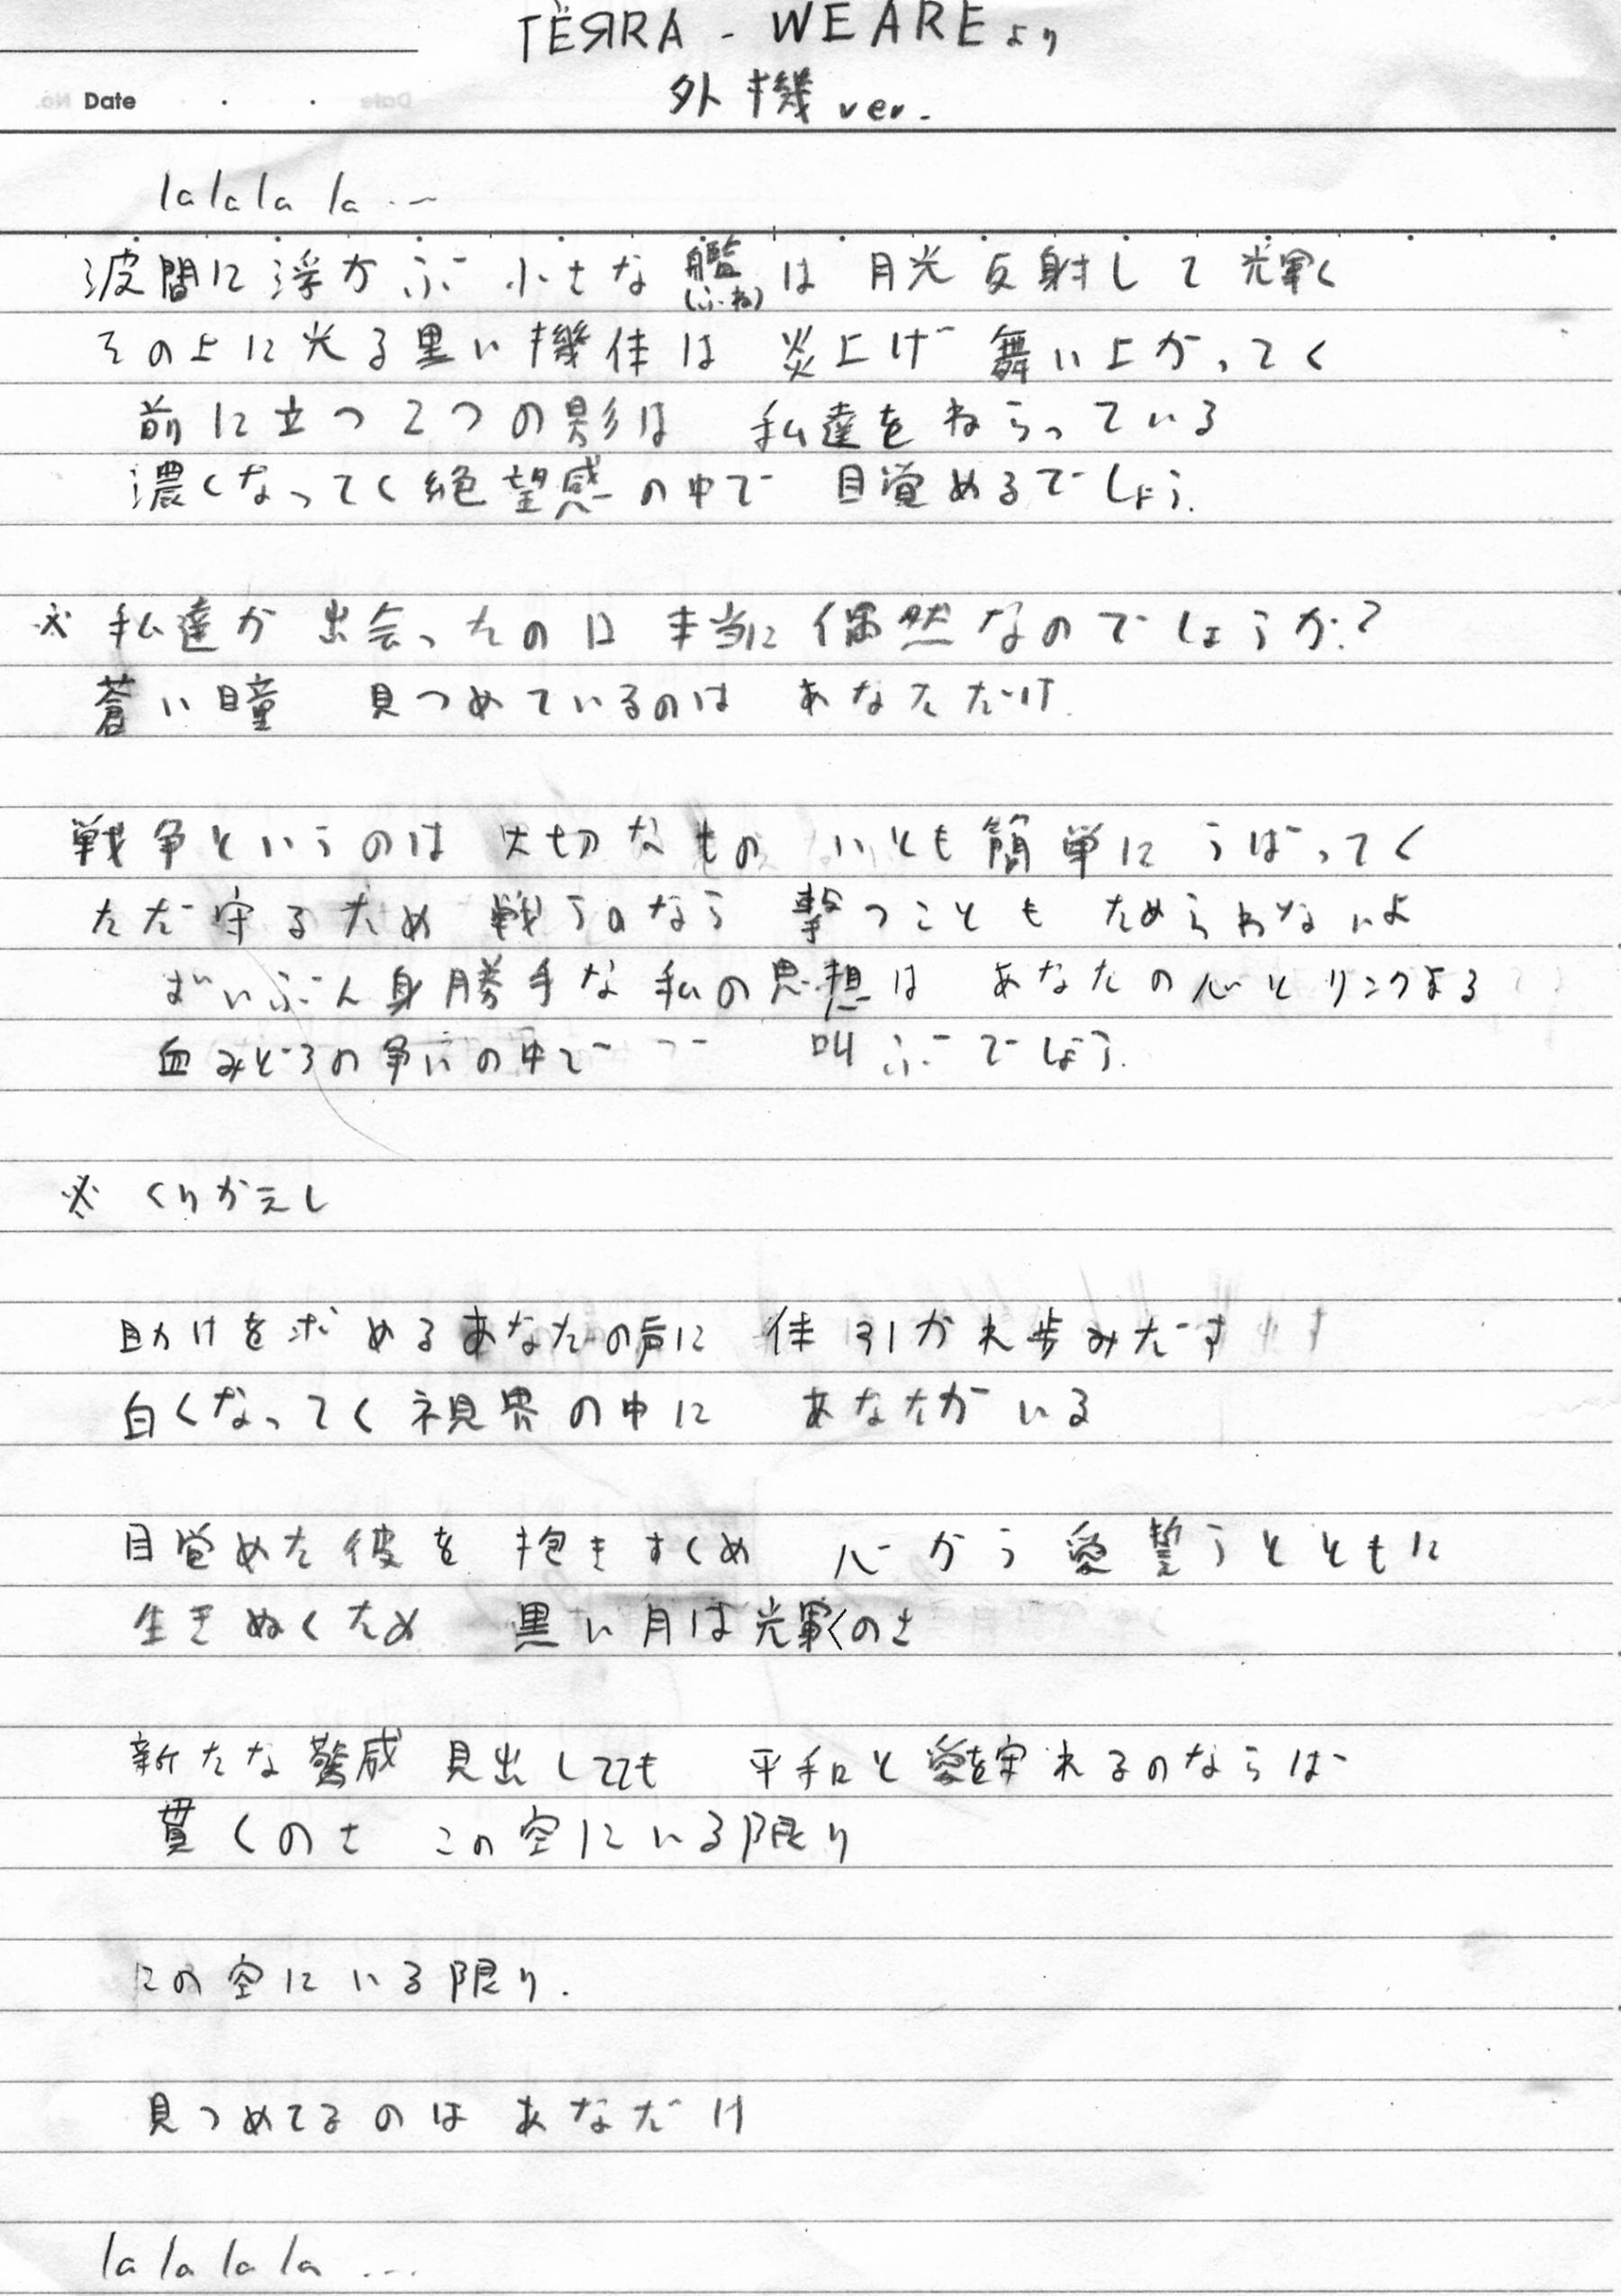 TЁЯRA - WE ARE より
Date
外機 ver.
la la la la ...
波間に浮かぶ 小さな 艦(ふね) は 月光 反射して 輝く
その上に光る黒い機体は 炎上げ 舞い上がってく
前に立つ2つの影は 私達をねらっている
濃くなってく絶望感の中で 目覚めるでしょう.
※ 私達が 出会ったのは 本当に 偶然なのでしょうか?
蒼い瞳 見つめているのは あなただけ.
戦争というのは 大切なもの いとも簡単に うばってく
ただ守るため 戦うのなら 撃つことも ためらわないよ
ずいぶん身勝手な 私の思想は あなたの心とリンクする
血みどろの争いの中で 叫ぶでしょう.
※ くりかえし
助けを求めるあなたの声に 体 引かれ歩みだす
白くなってく視界の中に あなたがいる
目覚めた彼を 抱きすくめ 心から 愛誓うとともに
生きぬくため 黒い月は輝くのさ
新たな驚威 見出しても 平和と愛を守れるのならば
貫くのさ この空にいる限り
この空にいる限り.
見つめてるのは あなだけ
la la la la ...